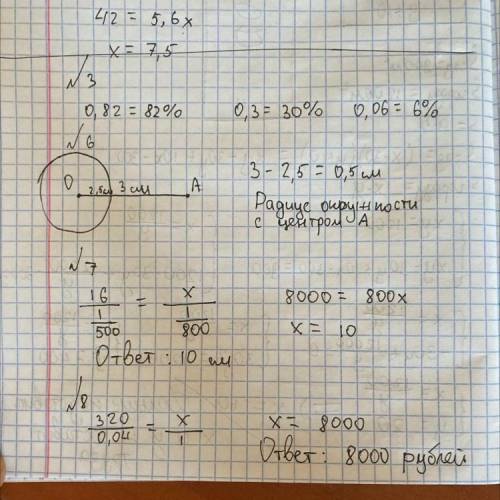 42 = 5,6x
x = 7,5
№3
0,82 = 82% 0,3 = 30% 0,06 = 6%
№6
O 2,5см 3 см A
3 - 2,5 = 0,5 см
Радиус окружности
с центром А
№7
16 / (1/500) = x / (1/800)
8000 = 800x
x = 10
Ответ: 10 см
№8
320/0,04 = x/1
x = 8000
Ответ: 8000 рублей